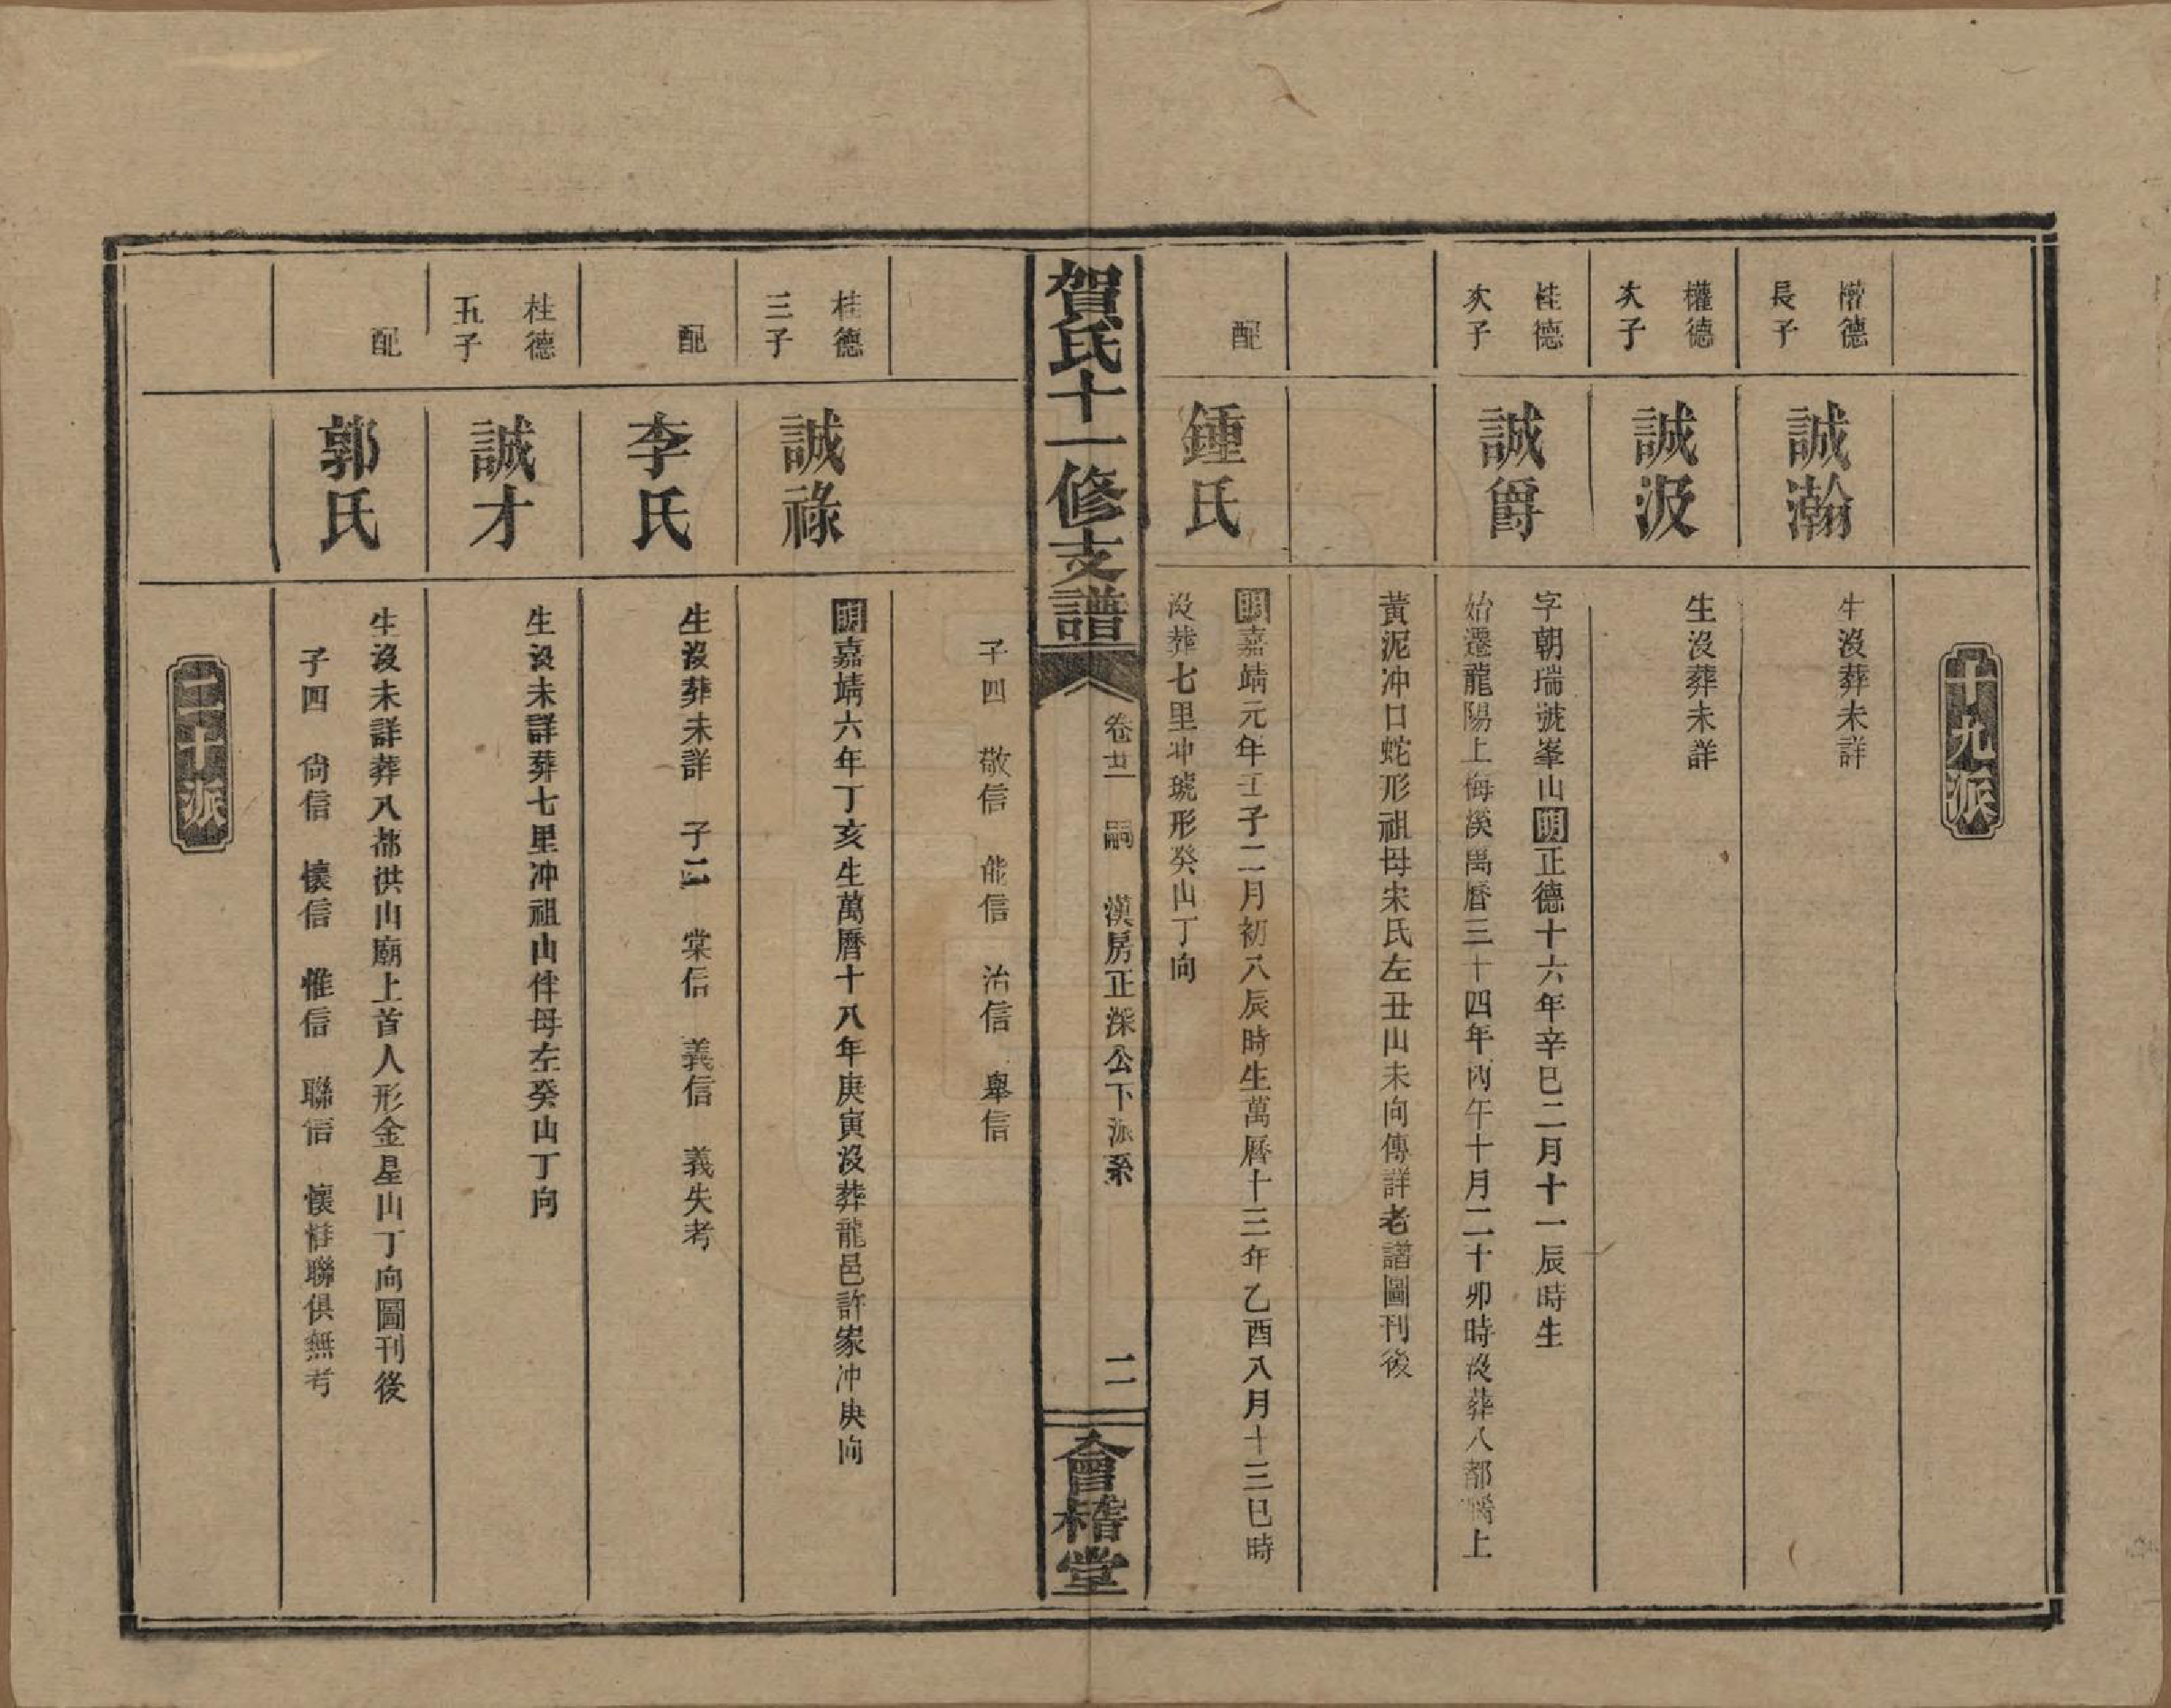 十九派
德
長子
誠瀚
生沒葬未詳
權德
次子
誠汲
生沒葬未詳
桂德
次子
誠爵
字朝瑞號峯山明正德十六年辛巳二月十一辰時生
始遷龍陽上梅溪萬曆三十四年丙午十月二十卯時沒葬八都上
黃泥冲口蛇形祖母宋氏左丑山未向傳詳老譜圖刊後
配
鍾氏
明嘉靖元年壬子二月初八辰時生萬曆十三年乙酉八月十三巳時
沒葬七里冲琥形癸山丁向
賀氏十一修支譜
卷廿二　嗣　漢房正深公下派系
二
會稽堂
子四　敬信　能信　治信　舉信
桂德
三子
誠祿
明嘉靖六年丁亥生萬曆十八年庚寅沒葬龍邑許家冲庚向
配
李氏
生沒葬未詳　子二　棠信　義信　義失考
桂德
五子
誠才
生沒未詳葬七里冲祖山伴母左癸山丁向
配
郭氏
生沒未詳葬八都洪山廟上首人形金星山丁向圖刊後
子四　尙信　懐信　惟信　聯信　懐惟聯俱無考
二十派